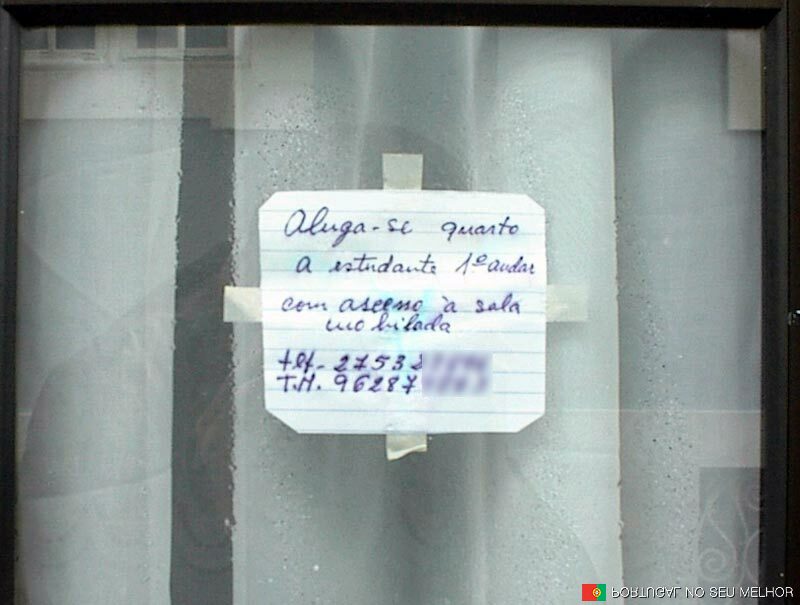 Aluga-se quarto
a estudante 1º andar
com asceno à sala
mobilada
tlf. 27532
T.M. 96287
PORTUGAL NO SEU MELHOR